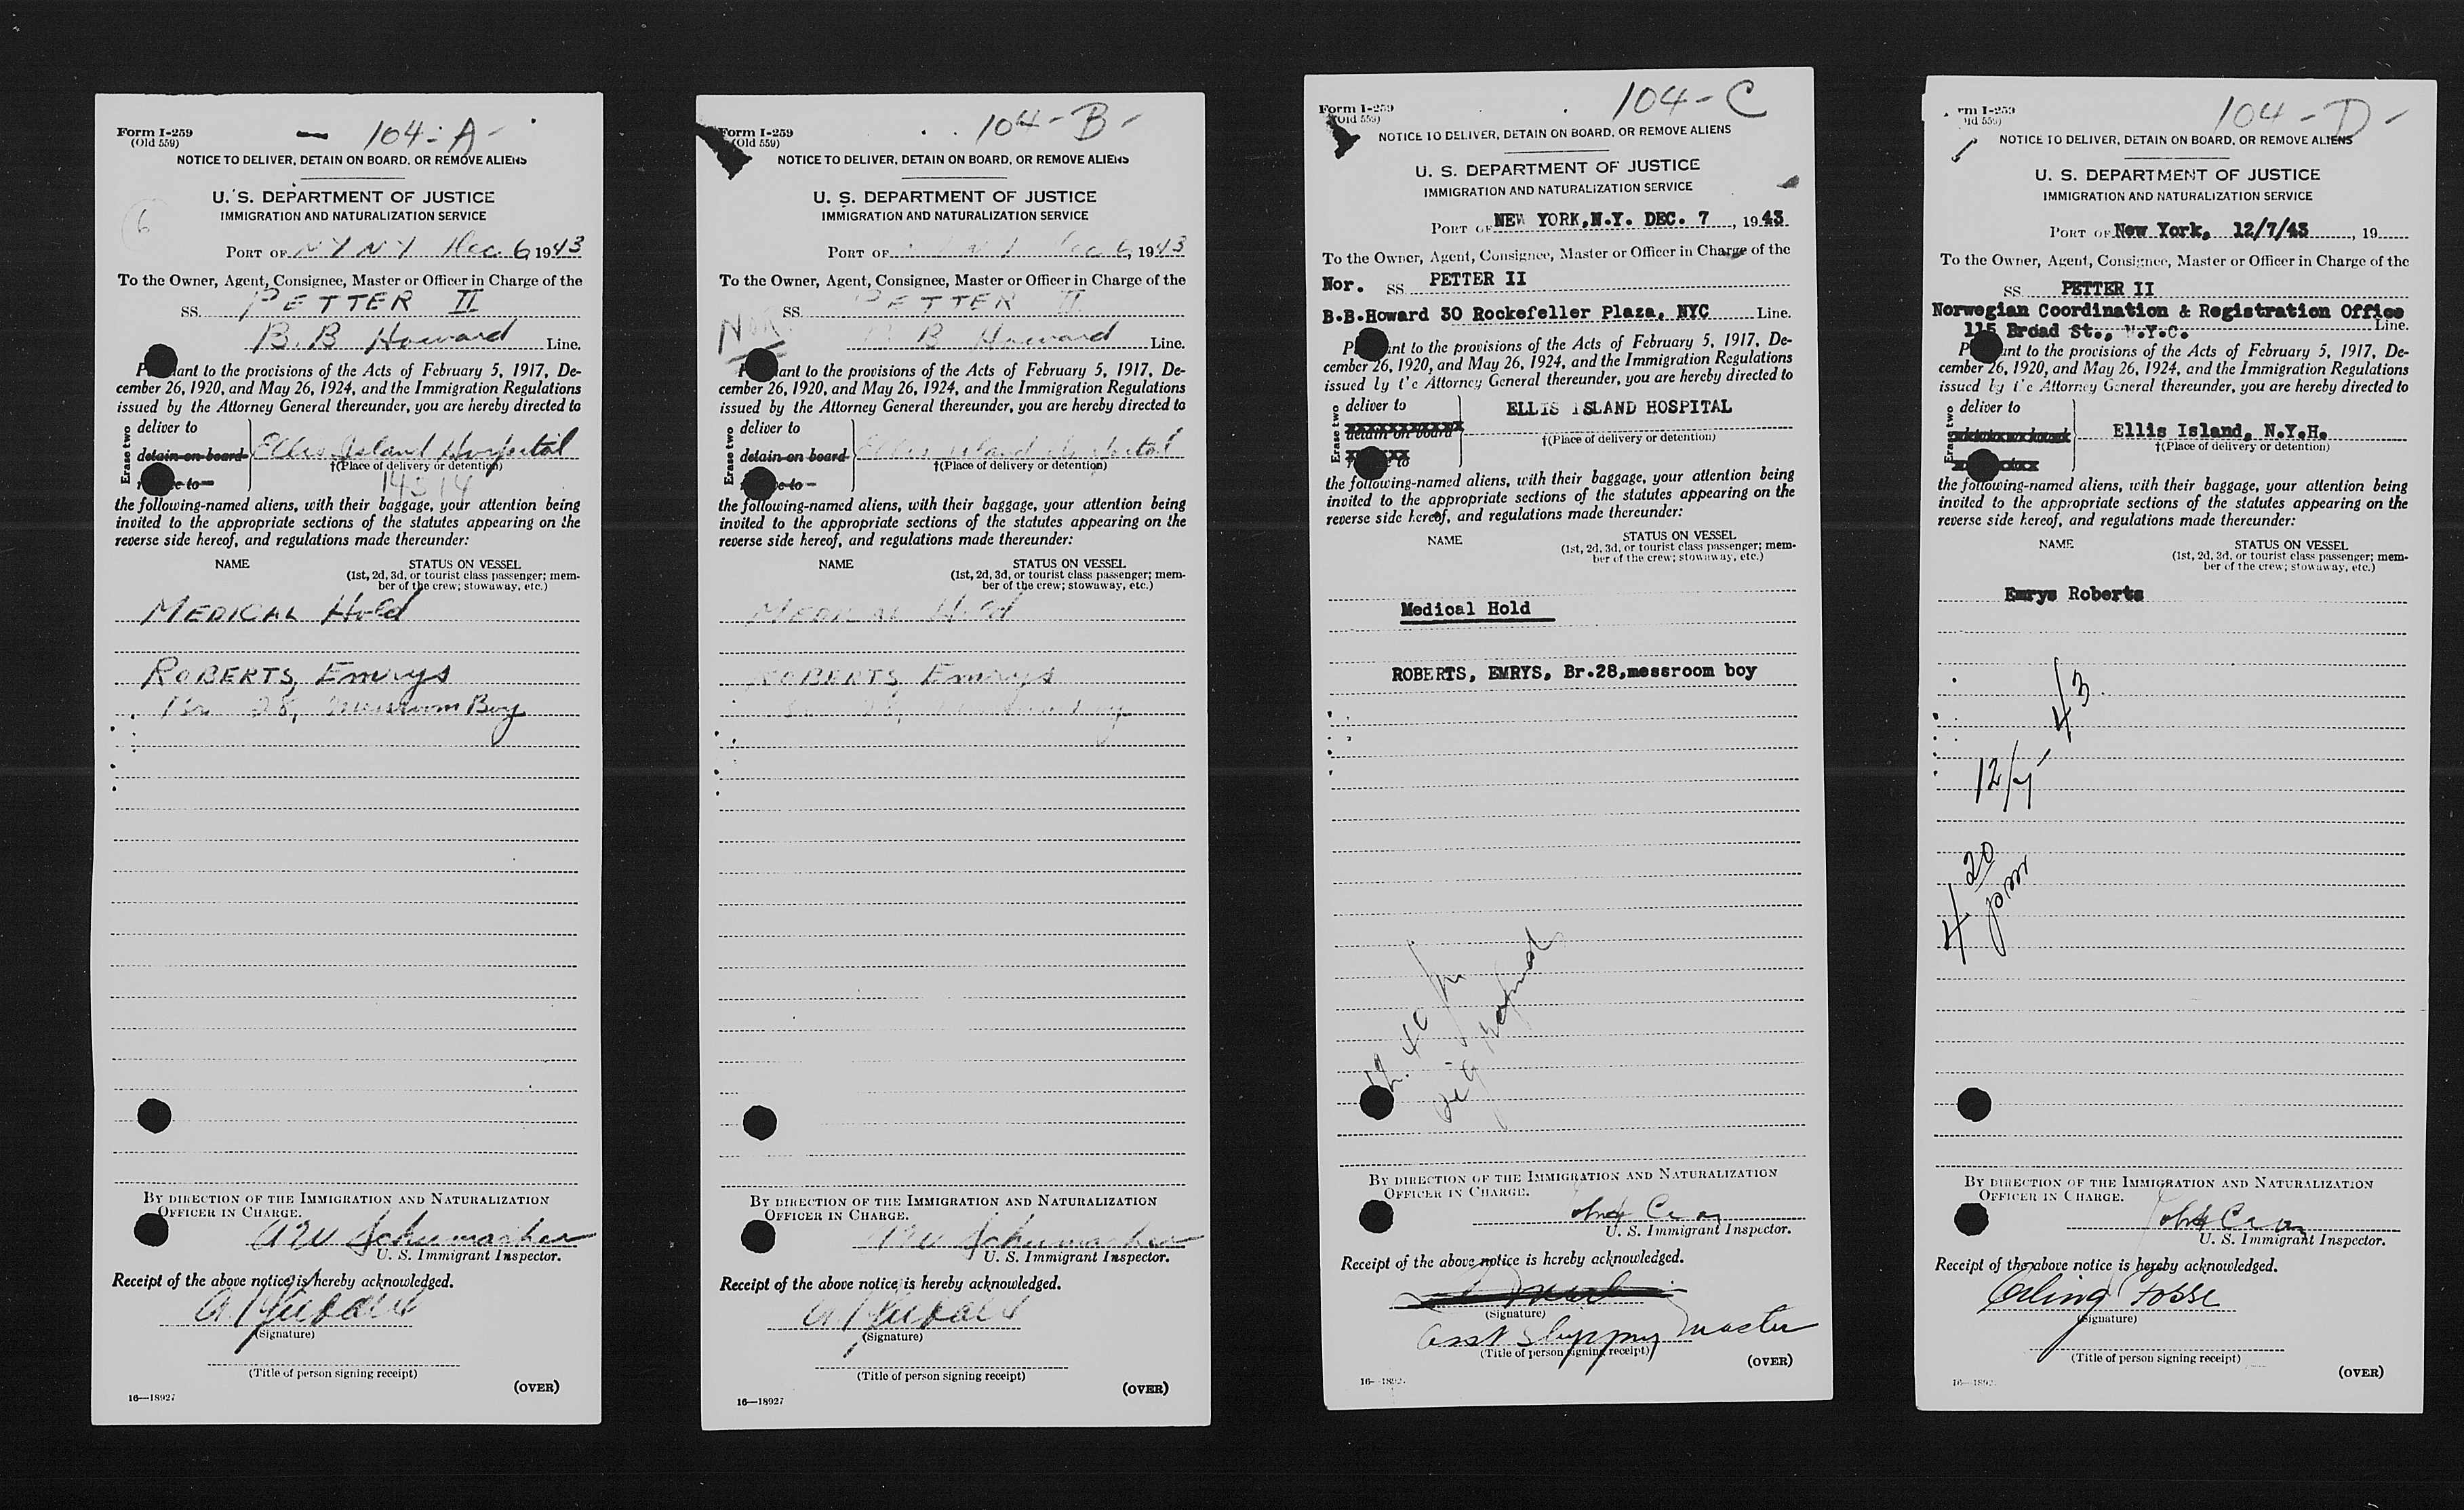 Form I-259
(Old 559)
— 104-A-
NOTICE TO DELIVER, DETAIN ON BOARD, OR REMOVE ALIENS
U. S. DEPARTMENT OF JUSTICE
IMMIGRATION AND NATURALIZATION SERVICE
6
PORT OF N Y N Y Dec. 6, 1943
To the Owner, Agent, Consignee, Master or Officer in Charge of the
SS. PETTER II
B. B Howard Line.
P ant to the provisions of the Acts of February 5, 1917, De-
cember 26, 1920, and May 26, 1924, and the Immigration Regulations
issued by the Attorney General thereunder, you are hereby directed to
Erase two
deliver to
detain on board
e to
Ellis Island Hospital
†(Place of delivery or detention)
14514
the following-named aliens, with their baggage, your attention being
invited to the appropriate sections of the statutes appearing on the
reverse side hereof, and regulations made thereunder:
NAME STATUS ON VESSEL
(1st, 2d, 3d, or tourist class passenger; mem-
ber of the crew; stowaway, etc.)
MEDICAL Hold
ROBERTS, Emrys
Br. 28, Messroom Boy
BY DIRECTION OF THE IMMIGRATION AND NATURALIZATION
OFFICER IN CHARGE.
A W Schumacher
U. S. Immigrant Inspector.
Receipt of the above notice is hereby acknowledged.
(Signature)
(Title of person signing receipt)
16—18927
(OVER)
Form I-259
(Old 559)
104-B-
NOTICE TO DELIVER, DETAIN ON BOARD, OR REMOVE ALIENS
U. S. DEPARTMENT OF JUSTICE
IMMIGRATION AND NATURALIZATION SERVICE
PORT OF N Y Dec 6, 1943
To the Owner, Agent, Consignee, Master or Officer in Charge of the
SS. PETTER II
NOR.
B B Howard Line.
P ant to the provisions of the Acts of February 5, 1917, De-
cember 26, 1920, and May 26, 1924, and the Immigration Regulations
issued by the Attorney General thereunder, you are hereby directed to
Erase two
deliver to
detain on board
e to
Ellis Island Hospital
†(Place of delivery or detention)
the following-named aliens, with their baggage, your attention being
invited to the appropriate sections of the statutes appearing on the
reverse side hereof, and regulations made thereunder:
NAME STATUS ON VESSEL
(1st, 2d, 3d, or tourist class passenger; mem-
ber of the crew; stowaway, etc.)
MEDICAL Hold
ROBERTS, Emrys
Br 28, Messroom Boy
BY DIRECTION OF THE IMMIGRATION AND NATURALIZATION
OFFICER IN CHARGE.
A W Schumacher
U. S. Immigrant Inspector.
Receipt of the above notice is hereby acknowledged.
(Signature)
(Title of person signing receipt)
16—18927
(OVER)
Form I-259
(Old 559)
104-C
NOTICE TO DELIVER, DETAIN ON BOARD, OR REMOVE ALIENS
U. S. DEPARTMENT OF JUSTICE
IMMIGRATION AND NATURALIZATION SERVICE
PORT OF NEW YORK, N.Y. DEC. 7, 1943
To the Owner, Agent, Consignee, Master or Officer in Charge of the
Nor. SS. PETTER II
B.B.Howard 30 Rockefeller Plaza, NYC Line.
P ant to the provisions of the Acts of February 5, 1917, De-
cember 26, 1920, and May 26, 1924, and the Immigration Regulations
issued by the Attorney General thereunder, you are hereby directed to
Erase two
deliver to
detain on board
to
ELLIS ISLAND HOSPITAL
†(Place of delivery or detention)
the following-named aliens, with their baggage, your attention being
invited to the appropriate sections of the statutes appearing on the
reverse side hereof, and regulations made thereunder:
NAME STATUS ON VESSEL
(1st, 2d, 3d, or tourist class passenger; mem-
ber of the crew; stowaway, etc.)
Medical Hold
ROBERTS, EMRYS, Br.28,messroom boy
BY DIRECTION OF THE IMMIGRATION AND NATURALIZATION
OFFICER IN CHARGE.
U. S. Immigrant Inspector.
Receipt of the above notice is hereby acknowledged.
(Signature)
Asst Shipping Master
(Title of person signing receipt)
(OVER)
Form I-259
(Old 559)
104-D-
NOTICE TO DELIVER, DETAIN ON BOARD, OR REMOVE ALIENS
U. S. DEPARTMENT OF JUSTICE
IMMIGRATION AND NATURALIZATION SERVICE
PORT OF New York, 12/7/43, 19
To the Owner, Agent, Consignee, Master or Officer in Charge of the
SS. PETTER II
Norwegian Coordination & Registration Office
115 Broad St., N.Y.C. Line.
P ant to the provisions of the Acts of February 5, 1917, De-
cember 26, 1920, and May 26, 1924, and the Immigration Regulations
issued by the Attorney General thereunder, you are hereby directed to
Erase two
deliver to
Ellis Island, N.Y.H.
†(Place of delivery or detention)
the following-named aliens, with their baggage, your attention being
invited to the appropriate sections of the statutes appearing on the
reverse side hereof, and regulations made thereunder:
NAME STATUS ON VESSEL
(1st, 2d, 3d, or tourist class passenger; mem-
ber of the crew; stowaway, etc.)
Emrys Roberts
12/7 43
4 20 pm
BY DIRECTION OF THE IMMIGRATION AND NATURALIZATION
OFFICER IN CHARGE.
U. S. Immigrant Inspector.
Receipt of the above notice is hereby acknowledged.
Erling Fosse
(Signature)
(Title of person signing receipt)
(OVER)